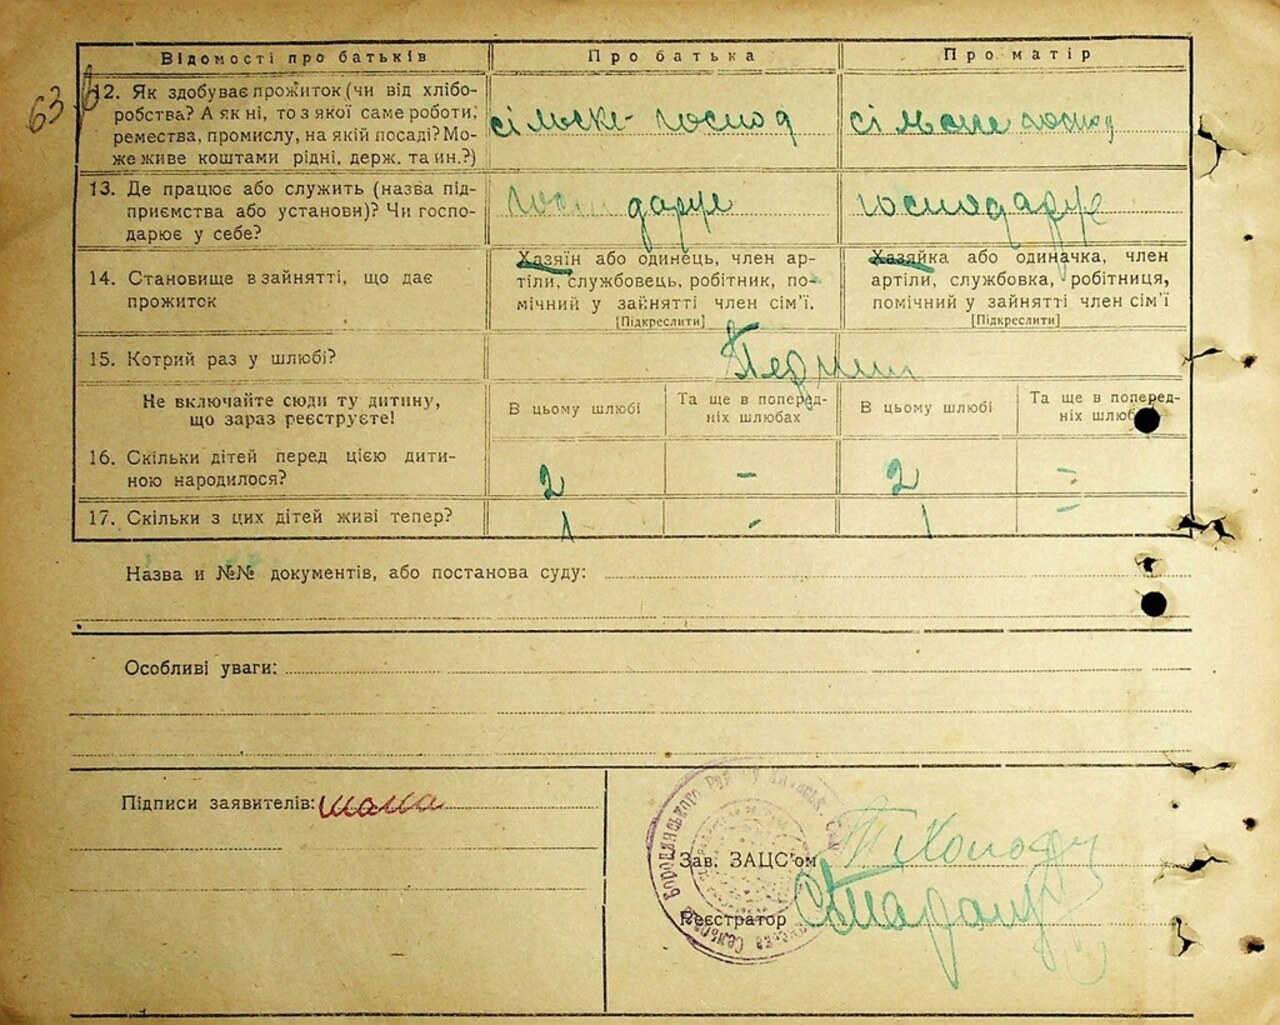 Відомості про батьків
Про батька
Про матір
63
12. Як здобуває прожиток (чи від хлібо-
робства? А як ні, то з якої саме роботи,
ремества, промислу, на якій посаді? Мо-
же живе коштами рідні, держ. та ин.?)
сільске господ
сільске господ
13. Де працює або служить (назва під-
приємства або установи)? Чи госпо-
дарює у себе?
господарує
господарує
14. Становище в зайнятті, що дає
прожиток
Хазяїн або одинець, член ар-
тіли, службовець, робітник, по-
мічний у зайнятті член сім'ї.
[Підкреслити]
Хазяйка або одиначка, член
артіли, службовка, робітниця,
помічний у зайнятті член сім'ї
[Підкреслити]
15. Котрий раз у шлюбі?
Не включайте сюди ту дитину,
що зараз реєструєте!
В цьому шлюбі
Та ще в поперед-
ніх шлюбах
В цьому шлюбі
Та ще в поперед-
ніх шлюбах
16. Скільки дітей перед цією дити-
ною народилося?
2
-
2
-
17. Скільки з цих дітей живі тепер?
1
-
1
-
Назва и №№ документів, або постанова суду:
Особливі уваги:
Підписи заявителів: мама
Бородянського
Зав. ЗАЦС'ом
Реєстратор